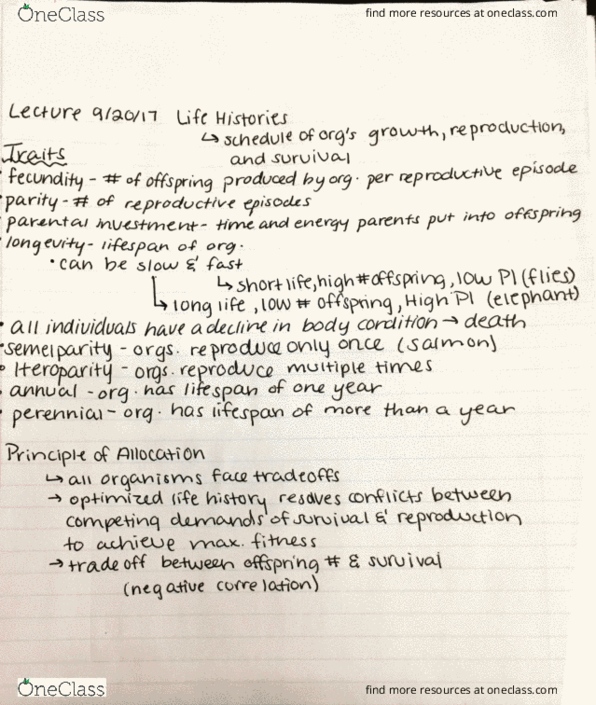 OneClass
find more resources at oneclass.com
Lecture 9/20/17 Life Histories
↳ schedule of org's growth, reproduction,
and survival
Traits
• fecundity - # of offspring produced by org. per reproductive episode
• parity - # of reproductive episodes
• parental investment - time and energy parents put into offspring
• longevity - lifespan of org.
• can be slow & fast
↳ short life, high # offspring, low PI (flies)
↳ long life, low # offspring, High PI (elephant)
• all individuals have a decline in body condition → death
• semelparity - orgs. reproduce only once (salmon)
• Iteroparity - orgs. reproduce multiple times
• annual - org. has lifespan of one year
• perennial - org. has lifespan of more than a year
Principle of Allocation
↳ all organisms face tradeoffs
→ optimized life history resolves conflicts between
competing demands of survival & reproduction
to achieve max. fitness
→ trade off between offspring # & survival
(negative correlation)
OneClass
find more resources at oneclass.com